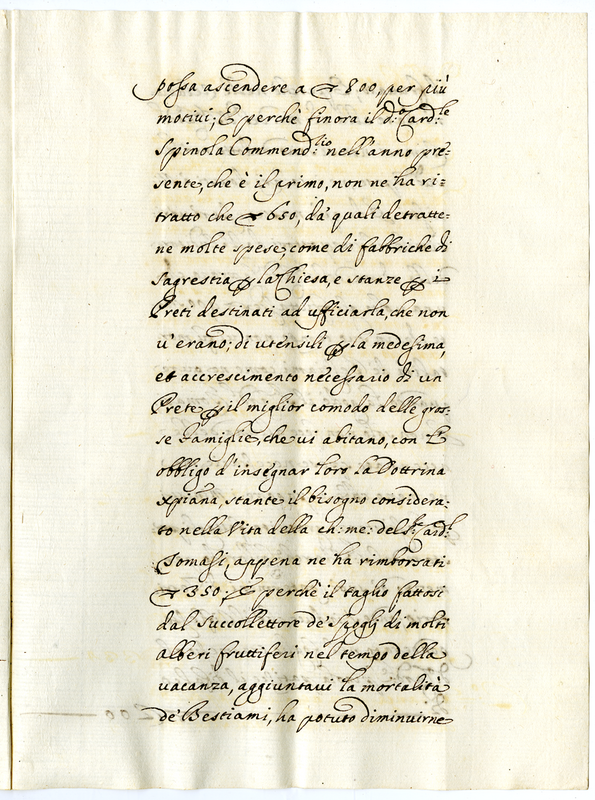 possa ascendere a ∇ 800, per più
motivi; E perchè finora il d.º Card.le
Spinola Commend.rio nell'anno pre=
sente, che è il primo, non ne ha ri=
tratto che ∇ 650, da' quali detratte=
ne molte spese, come di fabbriche di
Sagrestia p la Chiesa, e stanze p i
Preti destinati ad ufficiarla, che non
v'erano; di utensili p la medesima,
et accrescimento necessario di un
Prete p il miglior comodo delle gros=
se Famiglie, che vi abitano, con l'
obbligo d'insegnar loro la Dottrina
xpiana, stante il bisogno considera=
to nella Vita della ch: me: del S.r Card.l
Tomasi, appena ne ha rimborsati
∇ 350; E perchè il taglio fattosi
dal Succollettore de' Spogli di molti
alberi fruttiferi nel tempo della
vacanza, aggiuntavi la mortalità
de' Bestiami, ha potuto diminuirne